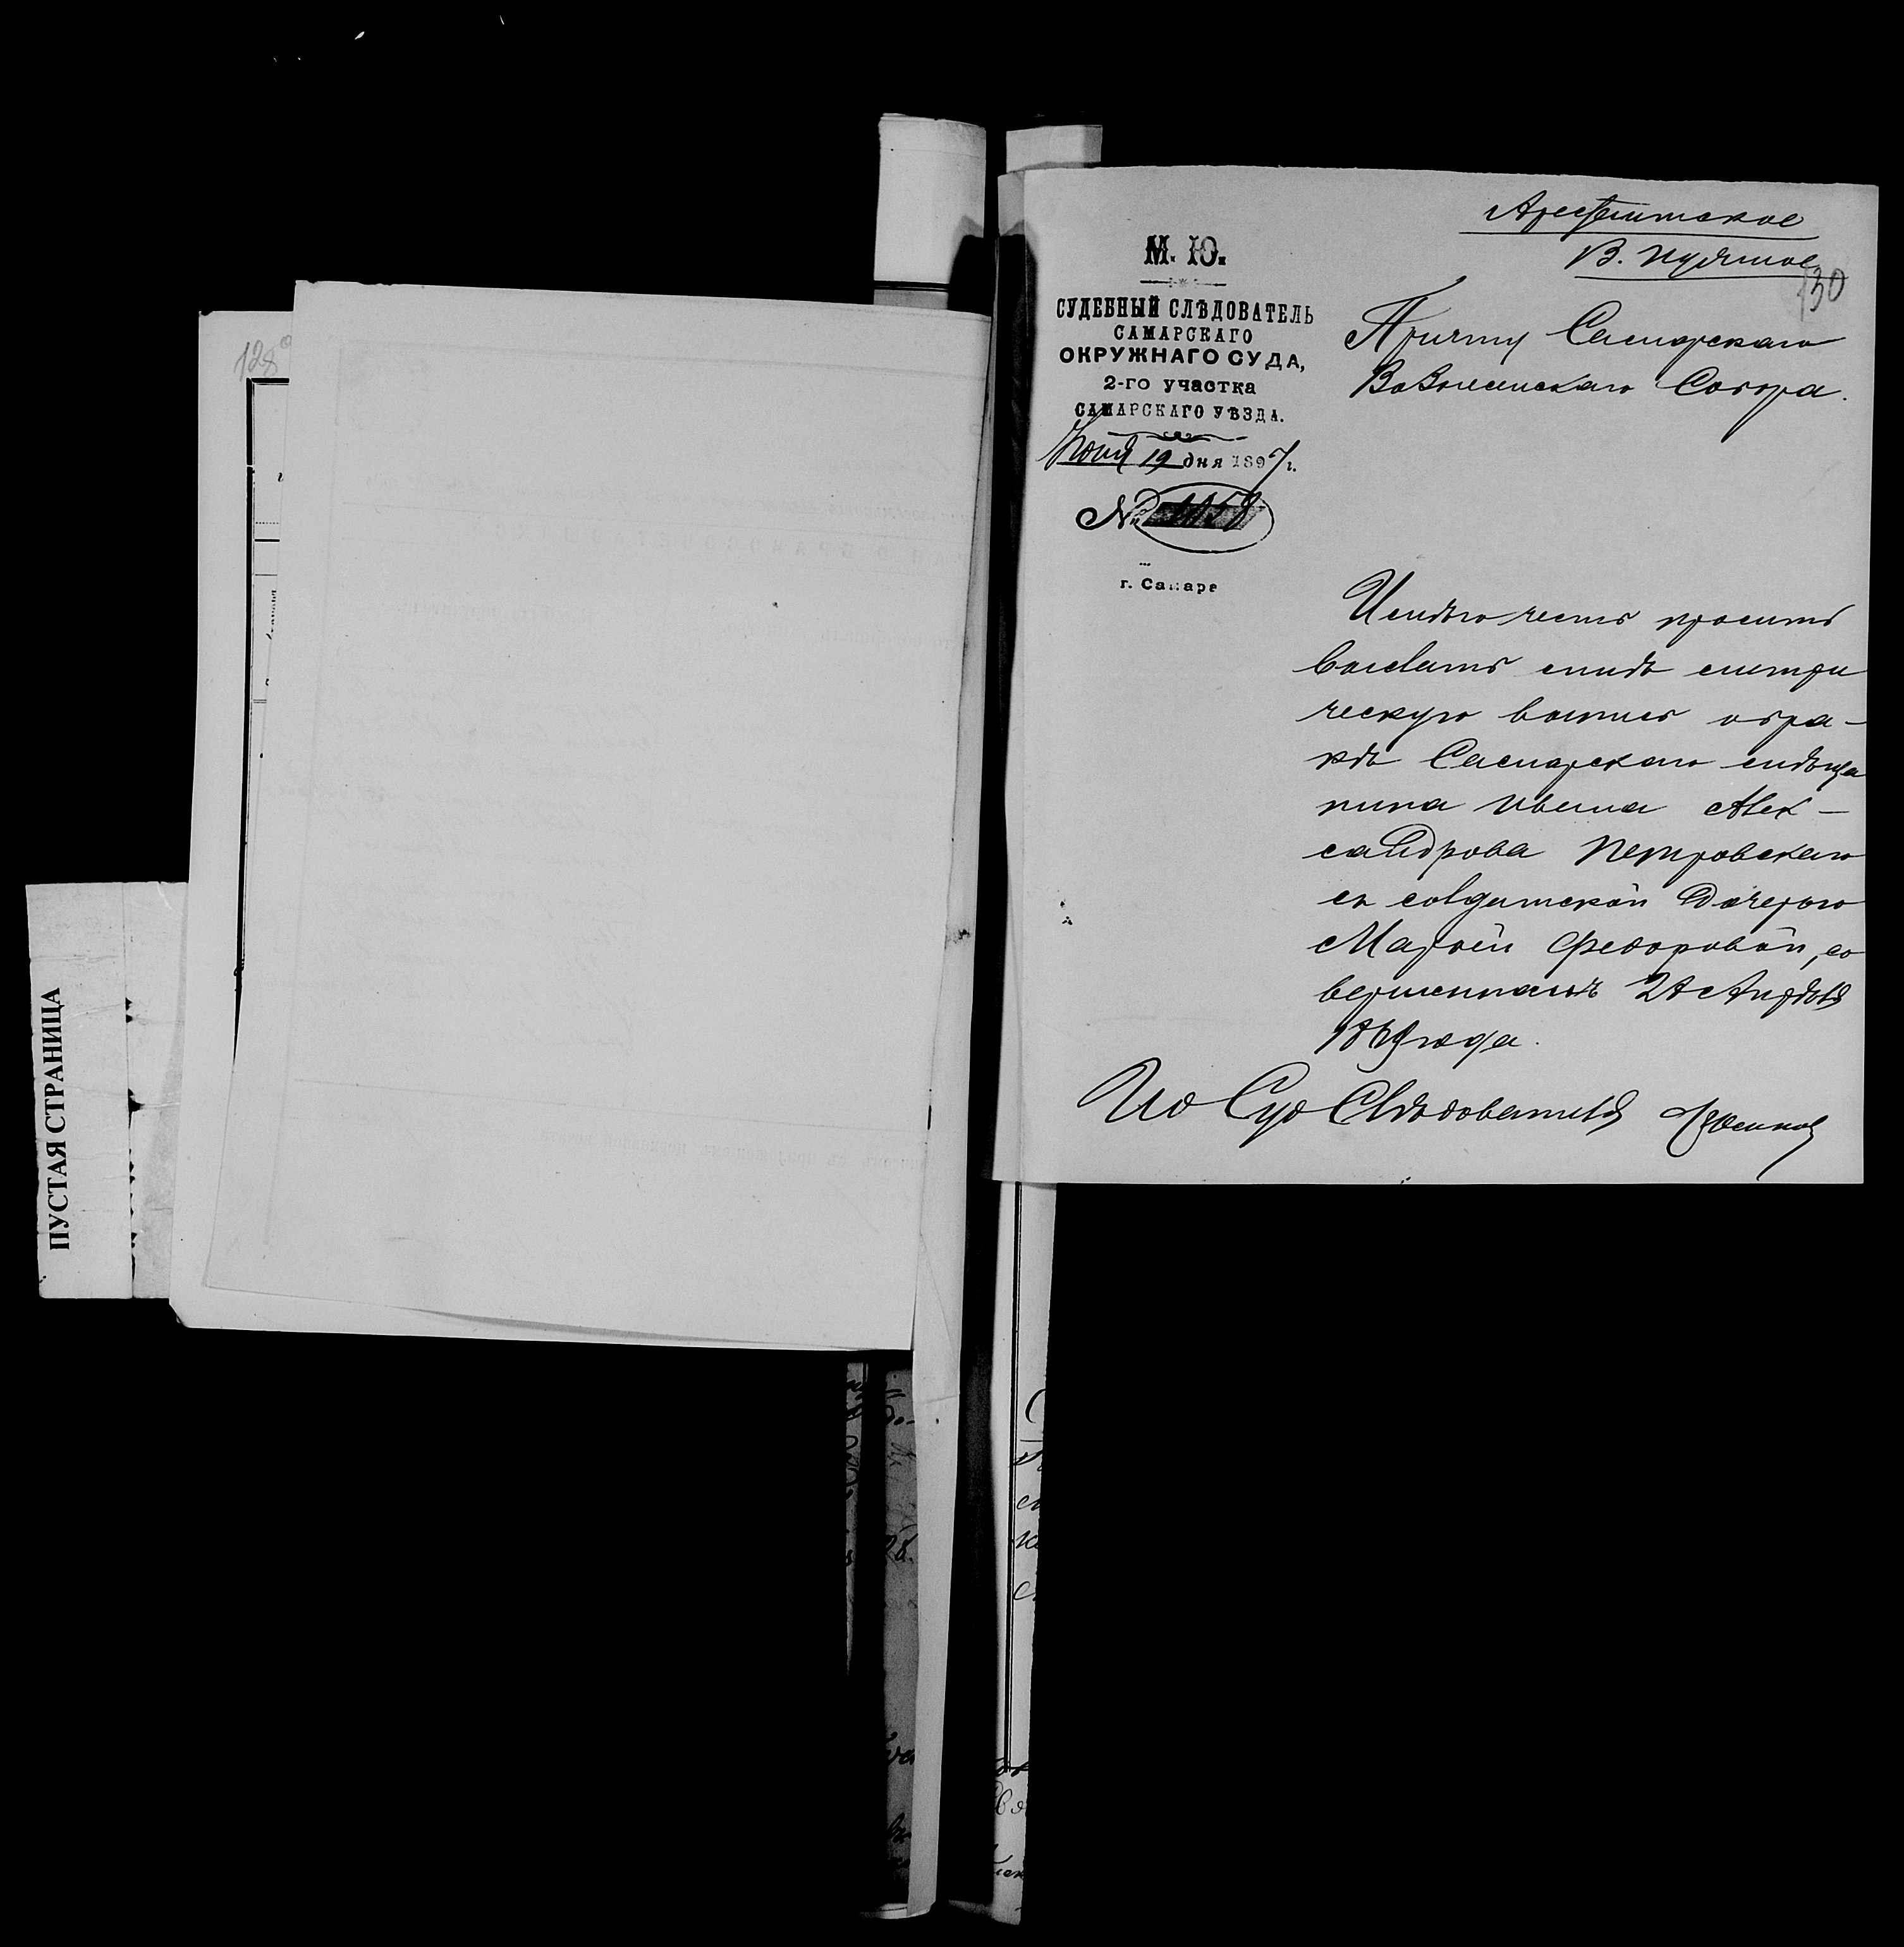 128
ПУСТАЯ СТРАНИЦА
Арестантское
В. нужное
130
М. Ю.
СУДЕБНЫЙ СЛѢДОВАТЕЛЬ
САМАРСКАГО
ОКРУЖНАГО СУДА,
2-го участка
САМАРСКАГО УѢЗДА.
19 дня 1897 г.
№
г. Самара
Причту Самарскаго
Вознесенскаго Собора.
Имѣю честь просить
выслать мнѣ метри
ческую выпись о бра-
кѣ Самарскаго мѣща
нина Ивана Алек-
сандрова Петровскаго
съ солдатской дочерью
Марьей Федоровой, со
вершенномъ Апрѣля
года.
Ио Суд Слѣдователя